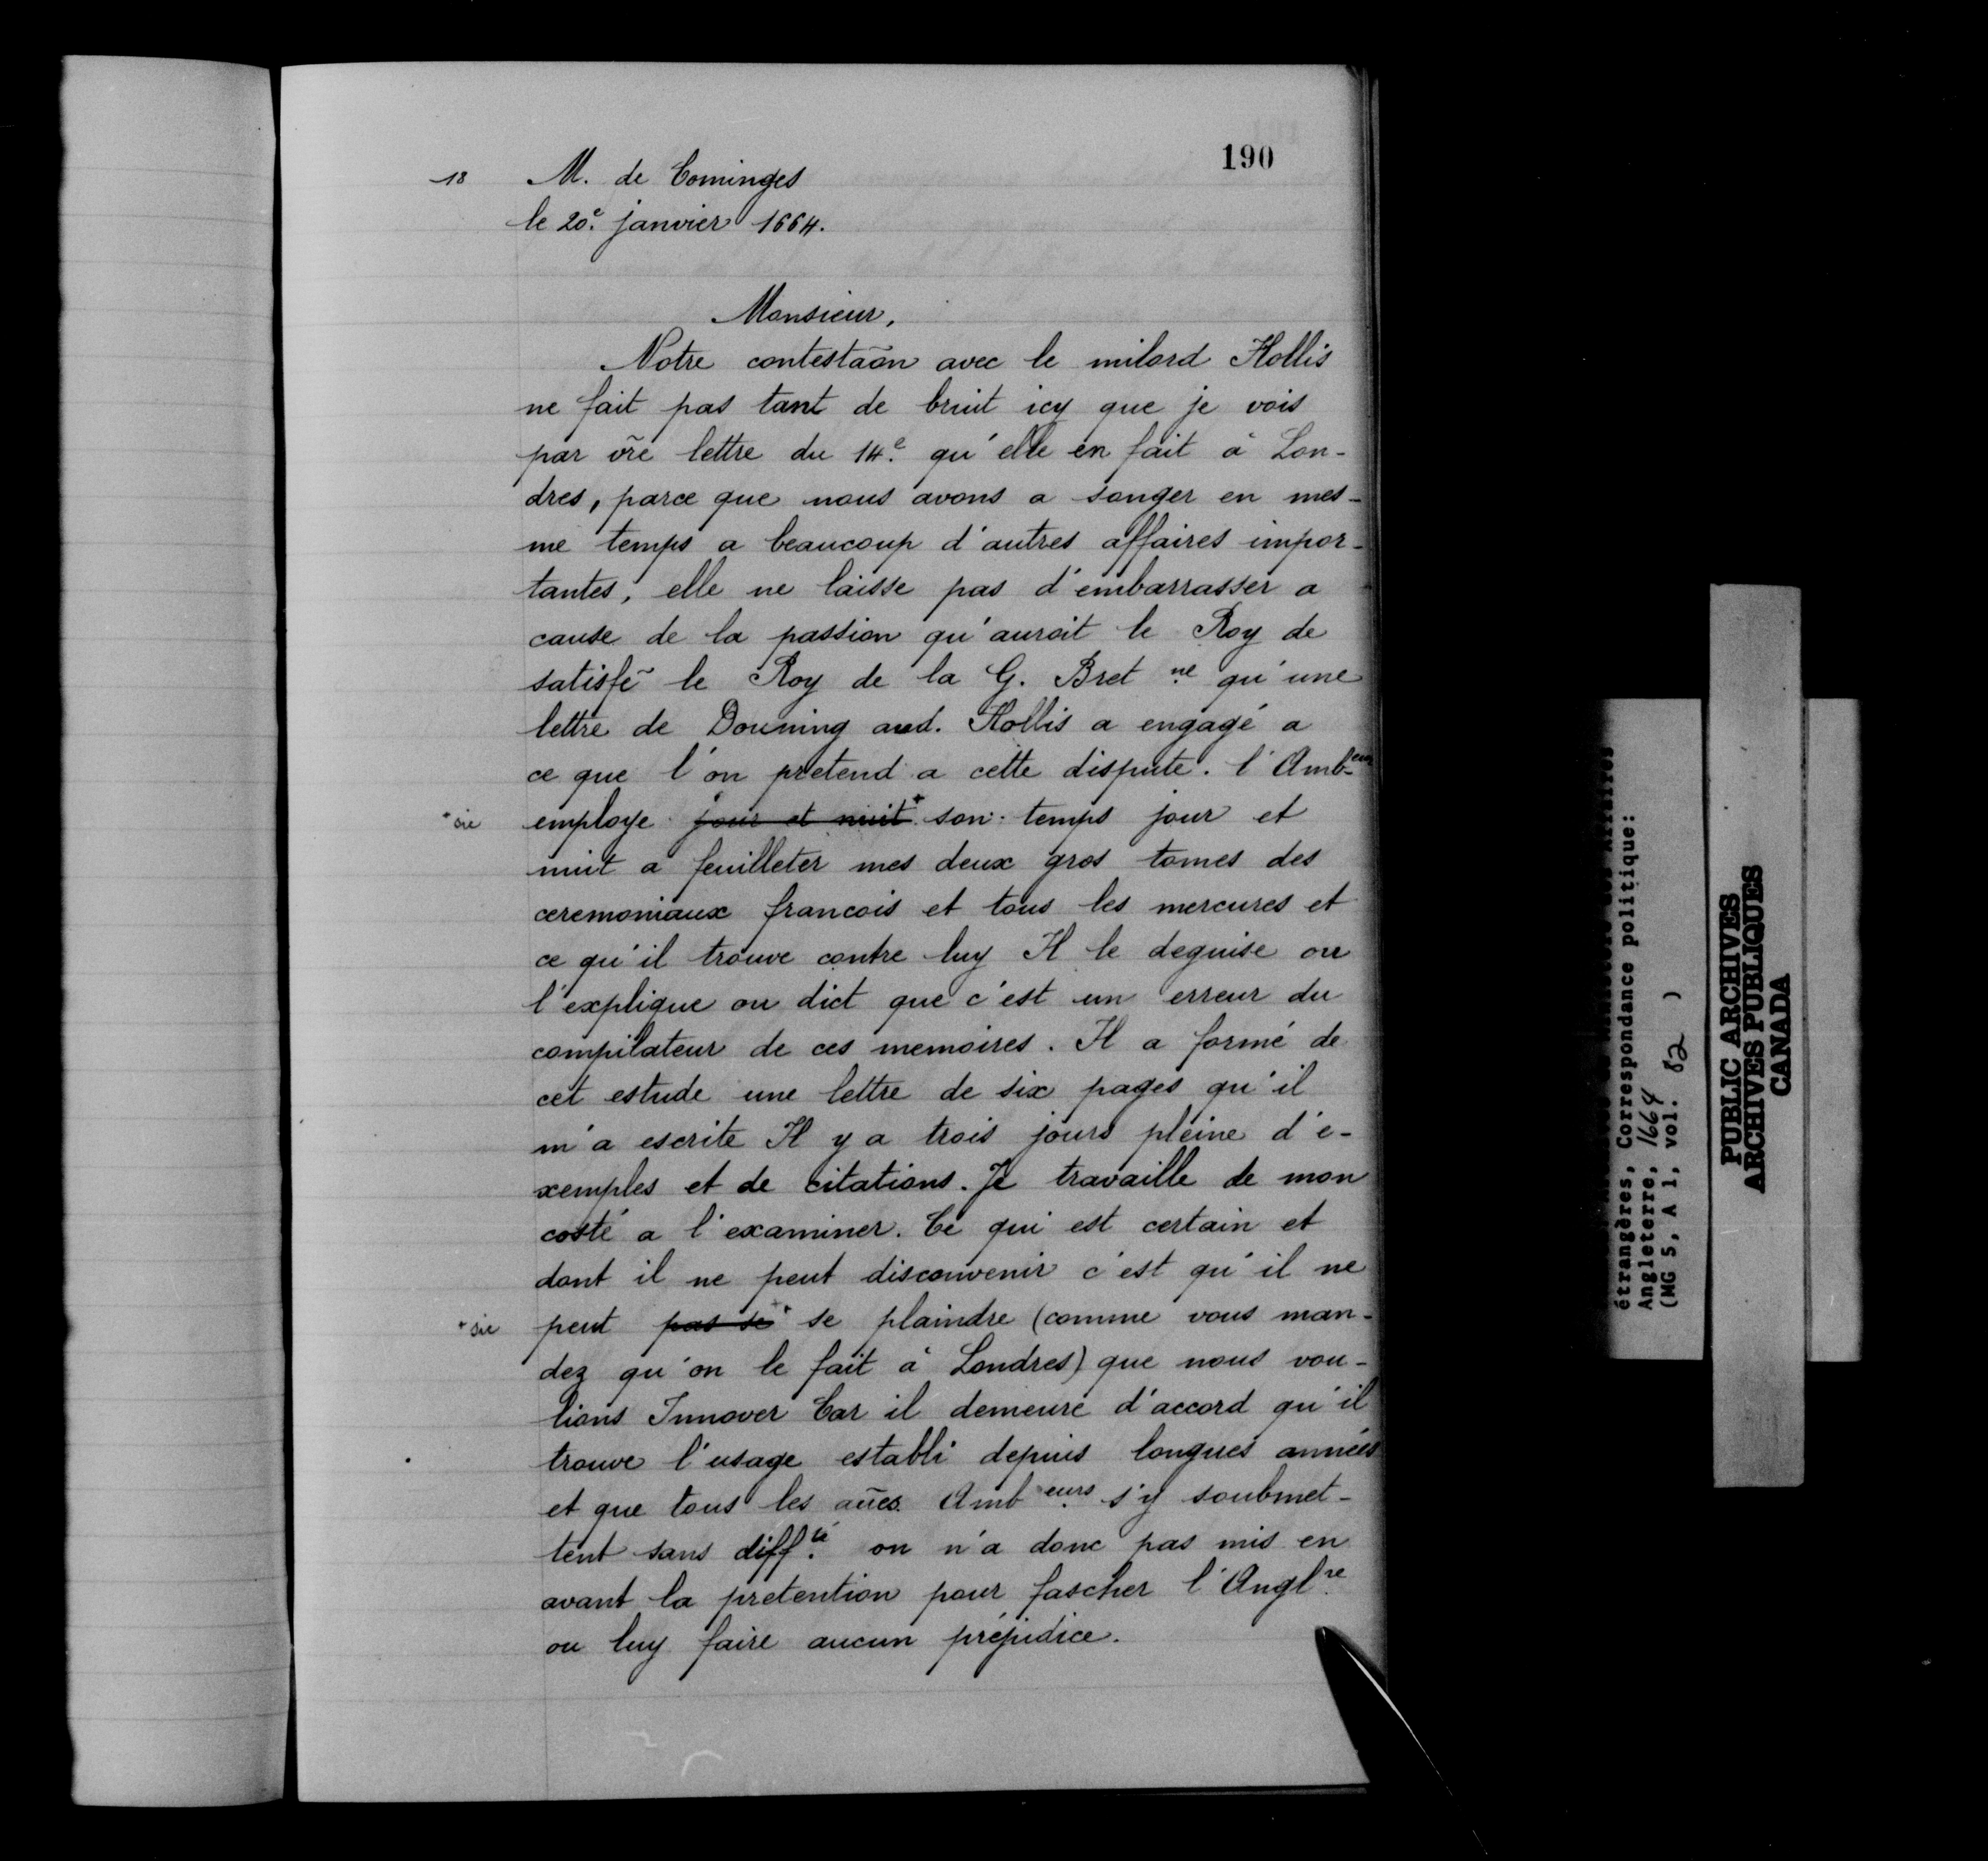 190
18 M. de Cominges
le 20e. janvier 1664.
Monsieur,
Notre contestaõn avec le milord Hollis
ne fait pas tant de bruit icy que je vois
par vr̃e lettre du 14e. qu'elle en fait à Lon-
dres, parce que nous avons a songer en mes-
me temps a beaucoup d'autres affaires impor-
tantes, elle ne laisse pas d'embarrasser a
cause de la passion qu'auroit le Roy de
satisfẽ le Roy de la G. Bret ne qu'une
lettre de Douning aud. Hollis a engagé a
ce que l'on pretend a cette dispute. l'Amb.eur
+sic employe jour et nuit+ son temps jour et
nuit a feuilleter mes deux gros tomes des
ceremoniaux francois et tous les mercures et
ce qu'il trouve contre luy Il le deguise ou
l'explique ou dict que c'est un erreur du
compilateur de ces memoires. Il a formé de
cet estude une lettre de six pages qu'il
m'a escrite Il y a trois jours pleine d'e-
xemples et de citations. Je travaille de mon
costé a l'examiner. Ce qui est certain et
dont il ne peut disconvenir c'est qu'il ne
+sic peut pas se+ se plaindre (comme vous man-
dez qu'on le fait à Londres) que nous vou-
lions Innover Car il demeure d'accord qu'il
trouve l'usage establi depuis longues années
et que tous les aũes. Amb eurs s'y soubmet-
tent sans diff.té on n'a donc pas mis en
avant la pretention pour fascher l'Angl re
ou luy faire aucun préjudice.
étrangères, Correspondance politique:
Angleterre, 1664
(MG 5, A 1, vol. 82 )
PUBLIC ARCHIVES
ARCHIVES PUBLIQUES
CANADA